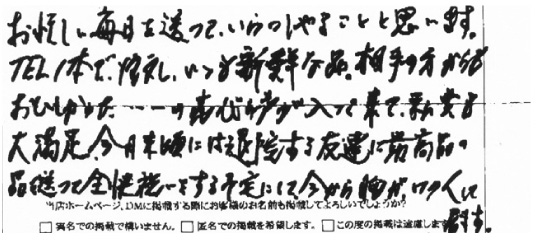 お忙しい毎日を送っていらっしゃることと思います。
TEL1本で、注文し、いつも新鮮な品。相手の方からも
おいしかった……の声が入って来て、私も
大満足。今月末頃には退院する友達に最高品の
品送って全快祝いをする予定にして今から胸がワクワクして
当店ホームページ、DMに掲載する際にお客様のお名前も掲載してよろしいでしょうか?
□実名での掲載で構いません。 □匿名での掲載を希望します。 □この度の掲載は遠慮します 居ます。